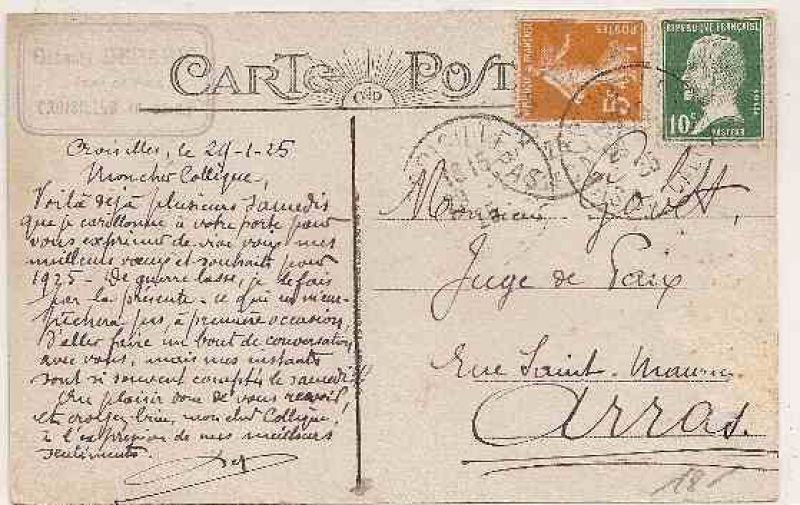 CARTE POST
RÉPUBLIQUE FRANÇAISE
POSTES
5c
10c
PASTEUR
POSTES
CROISILLES
Croisilles, le 29-1-25
Mon cher Collègue,
Voilà déjà plusieurs samedis
que je carillonne à votre porte pour
vous exprimer de vive voix mes
meilleurs vœux et souhaits pour
1925 - De guerre lasse, je le fais
par la présente - ce qui ne m'em-
pêchera pas, à première occasion,
d'aller faire un bout de conversation
avec vous, mais mes instants
sont si souvent comptés le samedi!
Au plaisir donc de vous revoir,
et croyez bien, mon cher Collègue,
à l'expression de mes meilleurs
sentiments.
Monsieur
Juge de Paix
Rue Saint-Maurice
Arras.